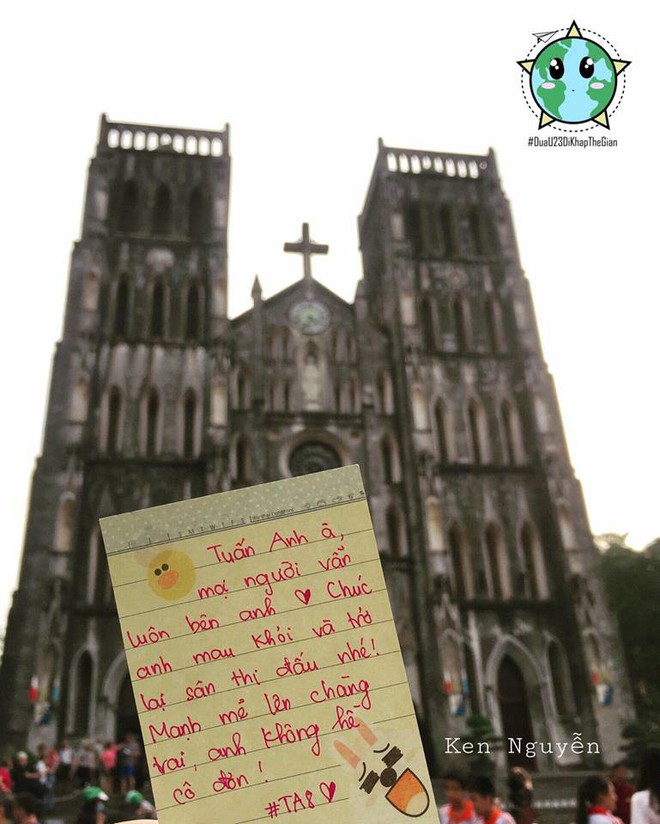 #DuaU23DiKhapTheGian
Tuấn Anh à,
mọi người vẫn
luôn bên anh ♡ Chúc
anh mau khỏi và trở
lại sân thi đấu nhé!
Mạnh mẽ lên chàng
trai, anh không hề
cô đơn!
#TA8 ♡
Ken Nguyễn